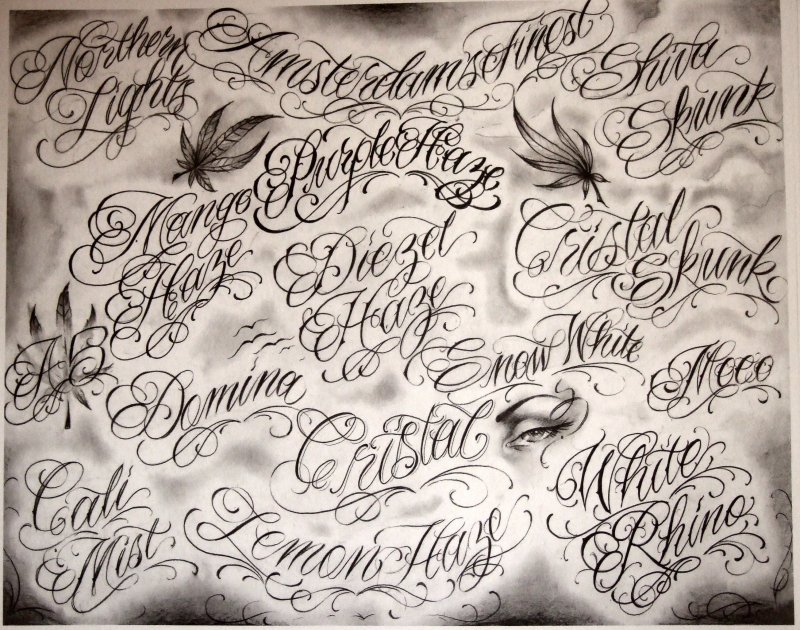 Northern
Lights
Amsterdam's Finest
Shiva
Skunk
Purple Haze
Mango
Haze
Diezel
Haze
Cristal
Skunk
Domina
Snow White
Moco
Cristal
White
Rhino
Cali
Mist
Lemon Haze